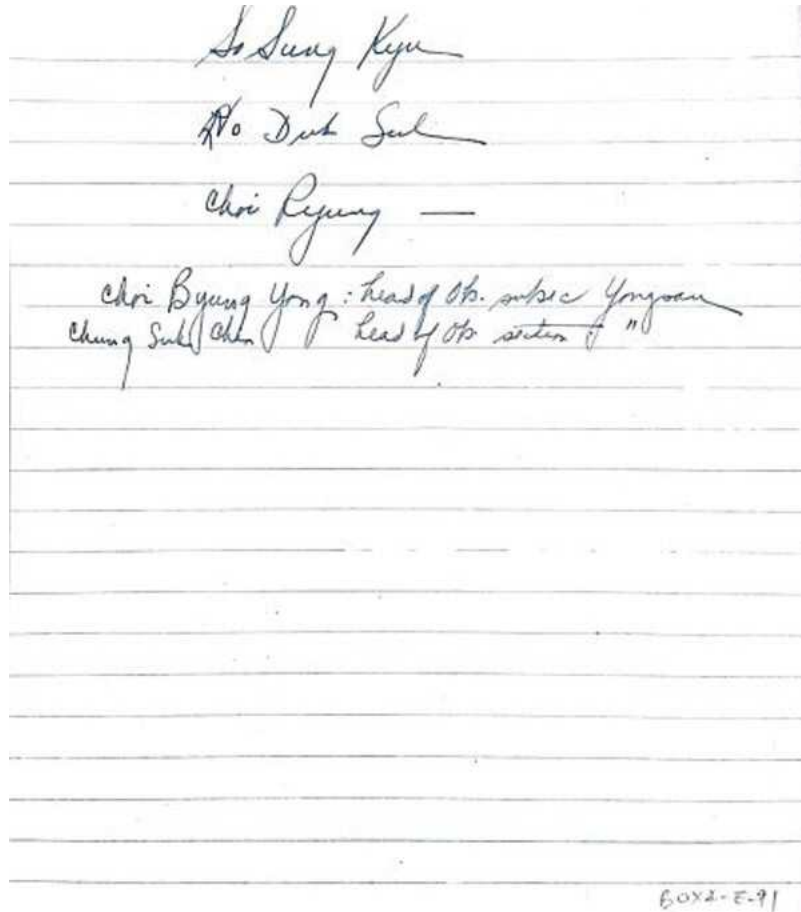 So Sung Kyu
No Duk Sul
Choi Ryung —
Choi Byung Yong : head of Ob. subsec Yongsan
Chung Suk Chan head of Ob section of "
BOX2-E-91